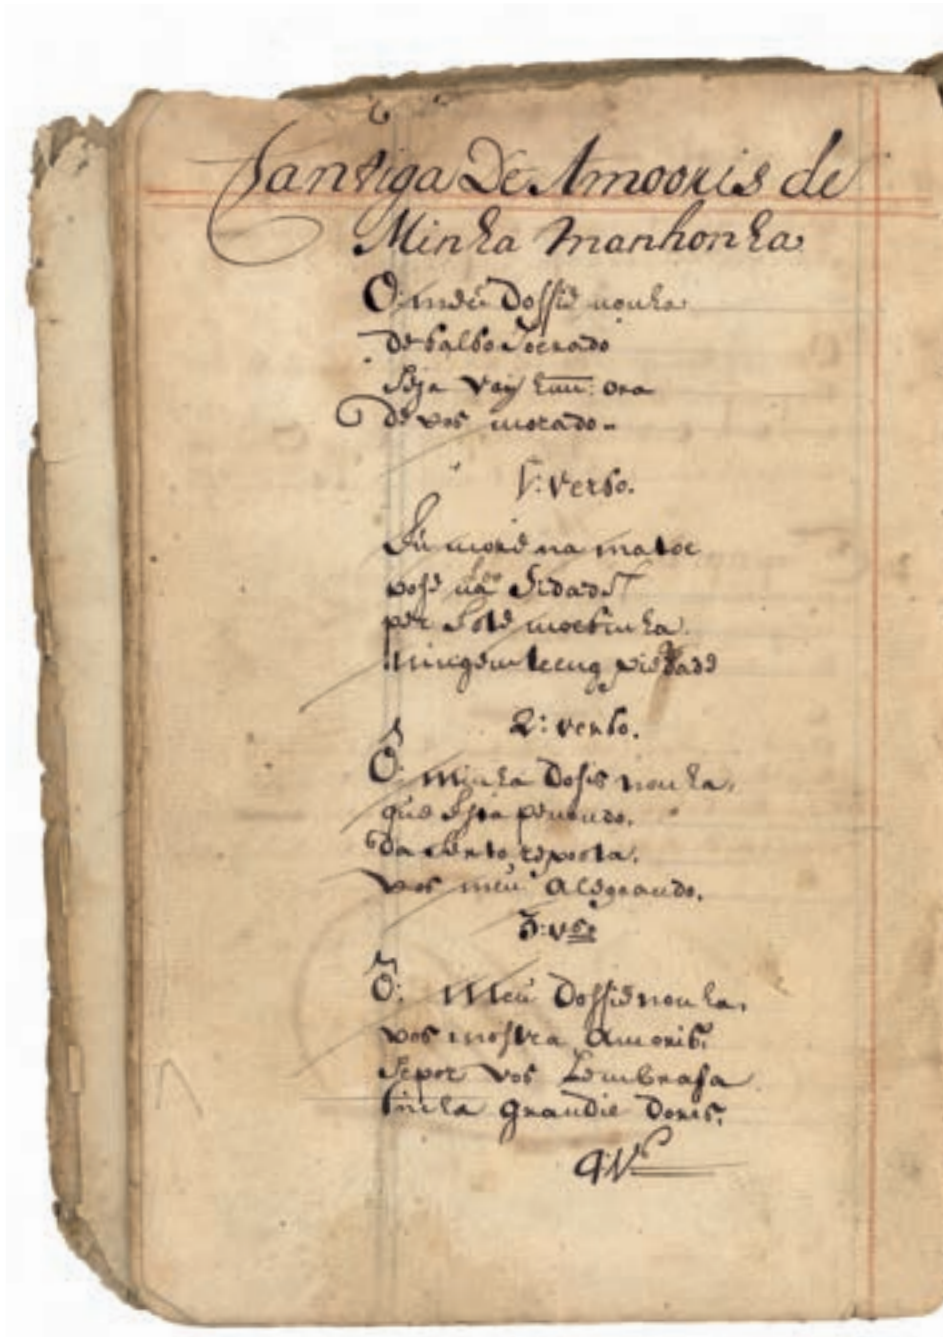 Cantiga De Amooris de
Minha manhonha
O: meu Dossie nonha
de balbo Jocrado
Seja vay huu: ora
de vos morado.
1: verso.
Su more na matoe
pose Sidade
per moesinha.
ningem teeng piedade
2: verso.
O: minha Dosis nonha,
que Esta penando.
Da serto, reposta.
vos meu alegrando.
3: vso
O: Meu Dossie nonha,
vos mostra Amoris,
Sepor vos Lembrasa
tinha grandie Doris,